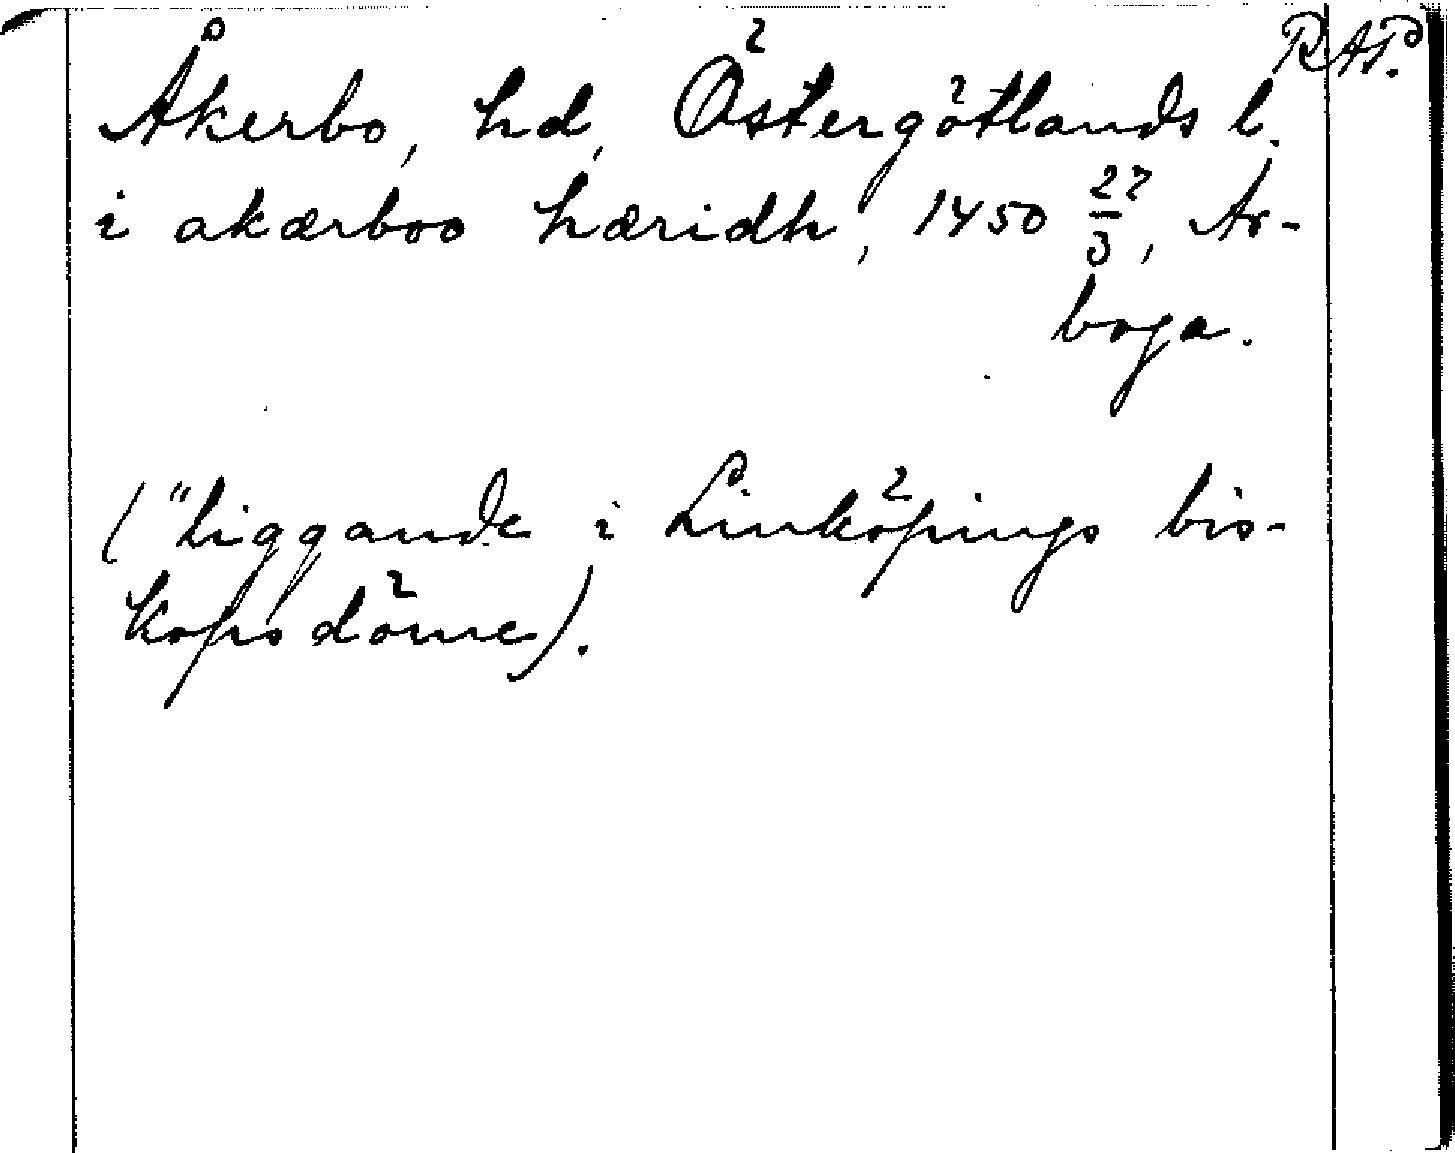 RAP.
Åkerbo, hd, Östergötlands l.
i akærboo hæridh, 1450 27/3, Ar-
boga.
("liggande i Linköpings bis-
kopsdöme).